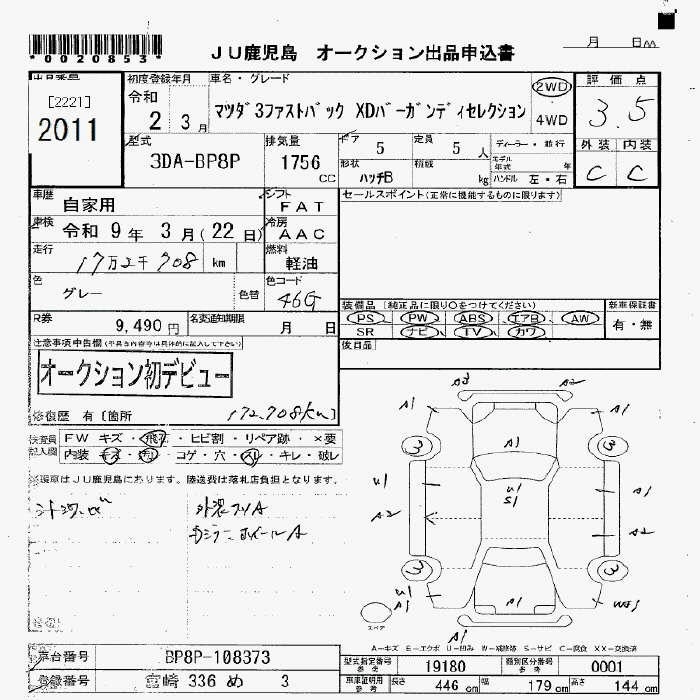 *0020853*
JU鹿児島 オークション出品申込書
月 日
[2221]
2011
初度登録年月
令和
2 3月
車名・グレード
マツダ3ファストバック XDバーガンディセレクション
2WD
4WD
評価点
3.5
外装 内装
C C
型式
3DA-BP8P
排気量
1756
CC
ドア
5
定員
5 人
形状
ハッチB
積載
kg
ディーラー・並行
モデル年式 年
ハンドル 左・右
車歴
自家用
車検
令和 9年 3月(22日)
走行
17万2千708 km
色
グレー
色替
シフト
FAT
冷房
AAC
燃料
軽油
色コード
46G
セールスポイント(正常に機能するものに限ります)
R券
9,490円
名変通知期限
月 日
装備品(純正品に限り○をつけてください)
PS PW ABS エアB AW
SR ナビ TV カワ
新車保証書
有・無
後日品
注意事項申告欄
オークション初デビュー
修復歴 有〔箇所
172,708km
検査員記入欄
FW キズ・飛石・ヒビ割・リペア跡・×要
内装 キズ・汚れ・コゲ・穴・スレ・キレ・破レ
※現車はJU鹿児島にあります。陸送費は落札店負担となります。
外装フリA
カラーホイールA
A2 A2
A1 A1
A1
3 3
U1 U1 A1
S1
A2 A2
3 3
U1
A1 A1 W2
A1
スペア
A-キズ E-エクボ U-凹み W-補修跡 S-サビ C-腐食 XX-交換済
車台番号
BP8P-108373
登録番号
宮崎 336 め 3
型式指定番号
参考
19180
類別区分番号
参考
0001
車庫証明用
参考
長さ 446cm 幅 179cm 高さ 144cm